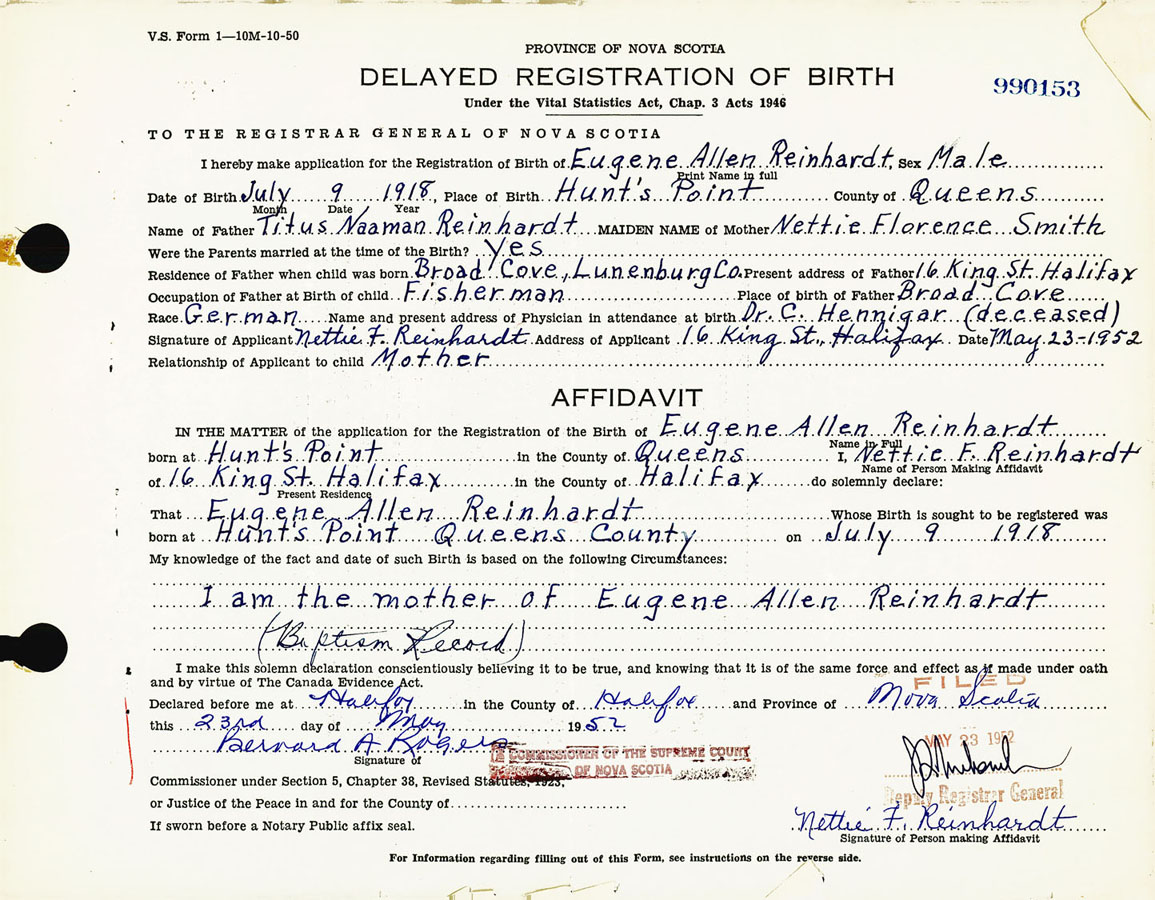 V.S. Form 1—10M-10-50
PROVINCE OF NOVA SCOTIA
DELAYED REGISTRATION OF BIRTH
990153
Under the Vital Statistics Act, Chap. 3 Acts 1946
TO THE REGISTRAR GENERAL OF NOVA SCOTIA
I hereby make application for the Registration of Birth of Eugene Allen Reinhardt, Sex Male
Print Name in full
Date of Birth July 9 1918, Place of Birth Hunt's Point County of Queens
Month Date Year
Name of Father Titus Naaman Reinhardt MAIDEN NAME of Mother Nettie Florence Smith
Were the Parents married at the time of the Birth? Yes
Residence of Father when child was born Broad Cove, Lunenburg Co. Present address of Father 16 King St. Halifax
Occupation of Father at Birth of child Fisherman Place of birth of Father Broad Cove
Race German Name and present address of Physician in attendance at birth Dr. C. Hennigar (deceased)
Signature of Applicant Nettie F. Reinhardt Address of Applicant 16 King St., Halifax Date May 23-1952
Relationship of Applicant to child Mother
AFFIDAVIT
IN THE MATTER of the application for the Registration of the Birth of Eugene Allen Reinhardt
Name in Full
born at Hunt's Point in the County of Queens I, Nettie F. Reinhardt
Name of Person Making Affidavit
of 16 King St. Halifax in the County of Halifax do solemnly declare:
Present Residence
That Eugene Allen Reinhardt Whose Birth is sought to be registered was
born at Hunt's Point Queens County on July 9 1918
My knowledge of the fact and date of such Birth is based on the following Circumstances:
I am the mother of Eugene Allen Reinhardt
(Baptism Record)
I make this solemn declaration conscientiously believing it to be true, and knowing that it is of the same force and effect as if made under oath
and by virtue of The Canada Evidence Act.
FILED
Declared before me at Halifax in the County of Halifax and Province of Nova Scotia
this 23rd day of May 1952
MAY 23 1952
Bernard A Rogers
Signature of
A COMMISSIONER OF THE SUPREME COURT
OF NOVA SCOTIA
Commissioner under Section 5, Chapter 38, Revised Statutes, 1923,
Deputy Registrar General
or Justice of the Peace in and for the County of
Nettie F. Reinhardt
If sworn before a Notary Public affix seal.
Signature of Person making Affidavit
For Information regarding filling out of this Form, see instructions on the reverse side.